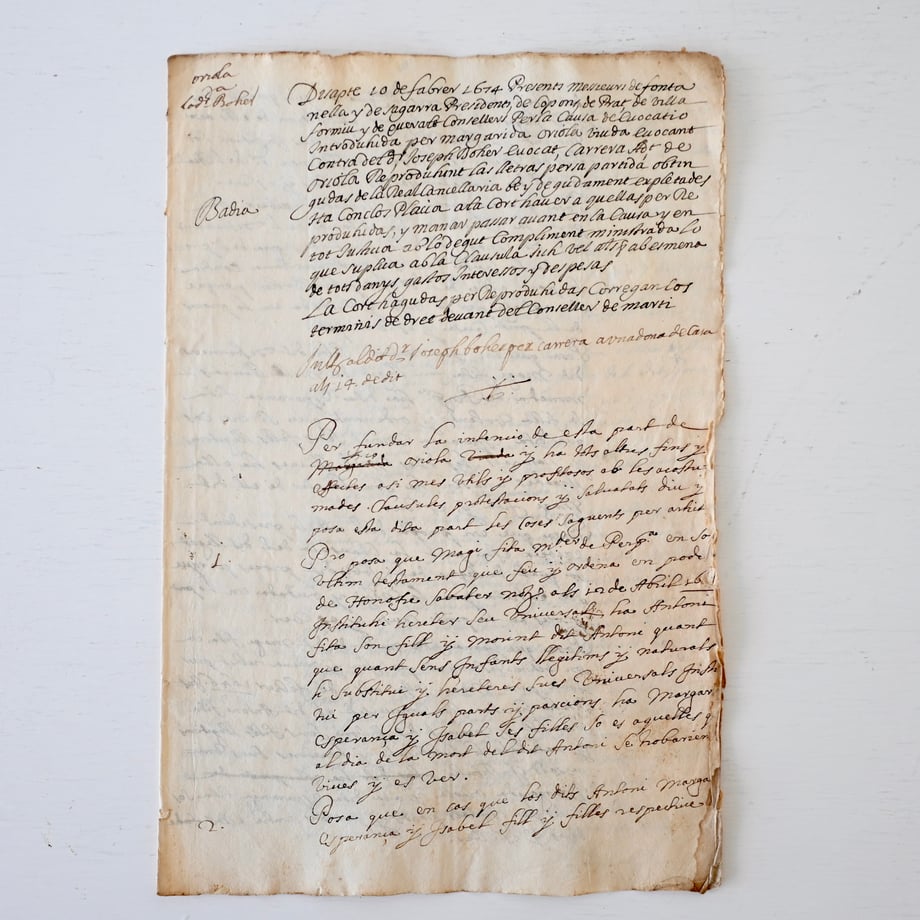 oriola
Boher
Disapte 10 de fabrer 1674 Presents messeurs de fonta
nella y de sagarra Presidents, de Copons, de Prat, de villa
formiu y de queralt Consellers Per la Causa de Euocatio
Introduhida per margarida oriola viuda Euocant
Contra del dr. Joseph Boher Euocat, Carrera de
oriola Reproduhint las lletras per sa partida obtin
gudas de la Real Cancellaria be y degudament expletades
Ita Conclos Placia a la Cort hauer a quellas per Re
Badia
produhidas, y manar passar auant en la Causa y en
tot Justitia ab lo degut Compliment ministrada lo
que suplica ab la Clausula esmena
de tots danys, gastos Interessos y despesas
La Cort hagudas per Reproduhidas Corregan los
terminis de dret deuant del Conseller de marti
dr. Joseph boher per carrera a vna dona de Casa
als 14. de dit
Per fundar la intencio de esta part de
oriola y ha tots altres fins y
effectes asi mes vtils y profitosos ab les acostu
mades Clausules protestacions y saluetats diu y
posa esta dita part les Coses seguents per
1.
Pro posa que Magi fita de en so
vltim testament que feu y ordena en pode
de Honofre Sabater als 12 de Abril 16
Instituhi hereter seu Vniversal ha Antoni
fita son fill y morint dit Antoni quant
que quant sens Infants llegitims y naturals
li substitui y hereteres sues Vniversals Insti
tui per Iguals parts y parcions ha Margar
esperança y Isabel ses filles so es aquelles q
al dia de la mort del dit Antoni se trobarien
viues y es ver.
2.
Posa que en cas que los dits Antoni Marga
esperança y Isabel fill y filles respectiue